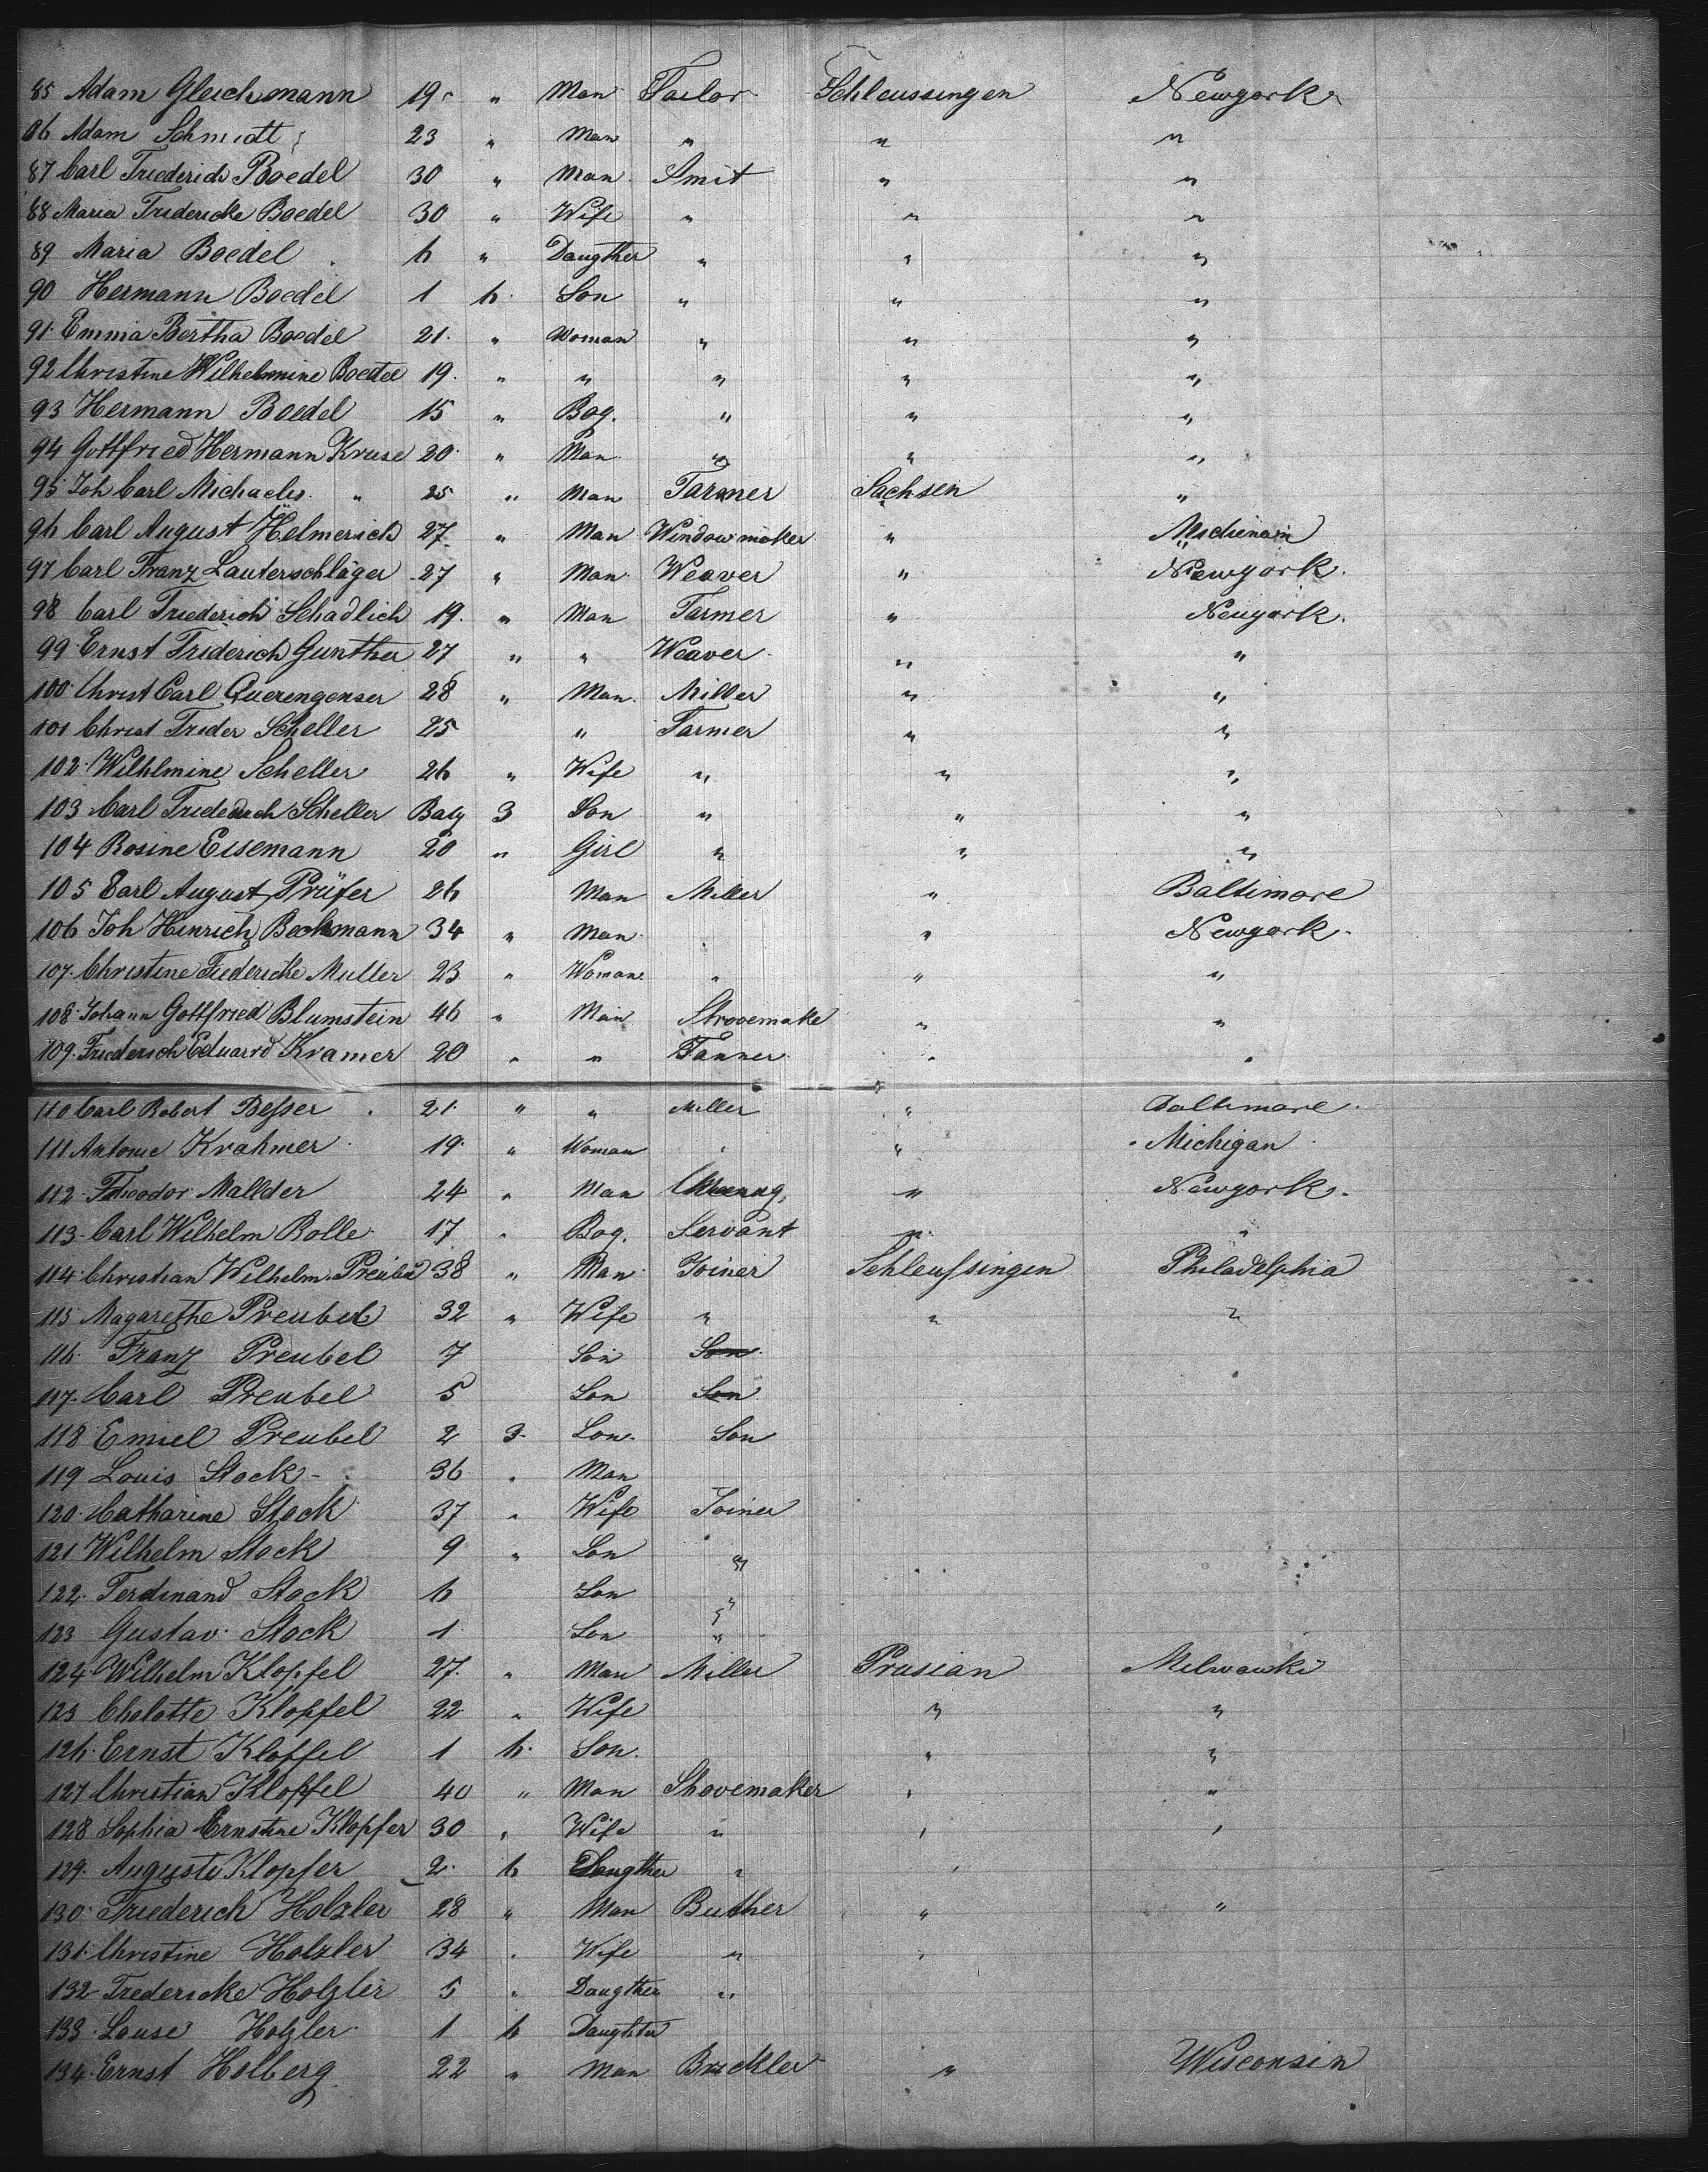 85 Adam Gleichmann 19 " Man Tailor Schleussingen Newyork
86 Adam Schmidt 23 " Man " " "
87 Carl Friederich Boedel 30 " Man Smit " "
88 Maria Fridericke Boedel 30 " Wife " " "
89 Maria Boedel 6 " Daugther " " "
90 Hermann Boedel 1 6 Son " " "
91 Emma Bertha Boedel 21 " Woman " " "
92 Christine Wilhelmine Boedel 19 " " " " "
93 Hermann Boedel 15 " Boy. " " "
94 Gottfried Hermann Kruse 20 " Man " " "
95 Joh Carl Michaelis " 25 " Man Farmer Sachsen "
96 Carl August Helmerich 27 " Man Windowmaker "
97 Carl Franz Lauterschläger 27 " Man Weaver " Newyork.
98 Carl Friederich Schadlich 19 " Man Farmer " Newyork.
99 Ernst Friderich Gunther 27 " " Weaver " "
100 Christ Carl Querengenser 28 " Man Miller " "
101 Christ Frider Scheller 25 " Farmer " "
102 Wilhlmine Scheller 26 " Wife " " "
103 Carl Friederich Scheller Baby 3 Son " " "
104 Rosine Eisemann 20 " Girl " " "
105 Carl August Prüfer 26 Man Miller " Baltimore
106 Joh Hinrich Beckmann 34 " Man " Newyork
107 Christine Fiedericke Muller 23 " Woman " " "
108 Johann Gottfried Blumstein 46 " Man Strovemake " "
109 Friederich Eduard Kramer 20 " " Tanner " "
110 Carl Robert Besser 21 " " Miller " Baltimore
111 Antonie Krahmer 19 " Woman " " Michigan
112 Theodor Mallder 24 " Man " Newyork.
113 Carl Wilhelm Rolle 17 " Boy. Servant " "
114 Christian Wilhelm Preubel 38 " Man Joiner Schleussingen Philadelphia
115 Magarethe Preubel 32 " Wife " " "
116 Franz Preubel 7 Son Son
117 Carl Preubel 5 Son Son
118 Emiel Preubel 2 3 Son Son
119 Louis Stock 36 " Man
120 Catharine Stock 37 " Wife Joiner
121 Wilhelm Stock 9 " Son "
122 Ferdinand Stock 6 Son "
123 Gustav Stock 1 Son "
124 Wilhelm Klopfel 27 " Man Miller Prusian Milwauki
125 Cholotte Klopfel 22 " Wife " "
126 Ernst Klopfel 1 6 Son. " "
127 Christian Klopfel 40 " Man Shovemaker " "
128 Sophia Ernstine Klopfer 30 " Wife " " "
129 Auguste Klopfer 2 6 Daugther " "
130 Friederich Holzler 28 " Man Buther " "
131 Christine Holzler 34 " Wife " "
132 Fredericke Holzler 5 " Daugther "
133 Louse Holzler 1 6 Daughter
134 Ernst Holberg 22 " Man Brickler " Wisconsin